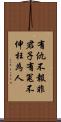 有仇不報非
君子有冤不
伸枉為人